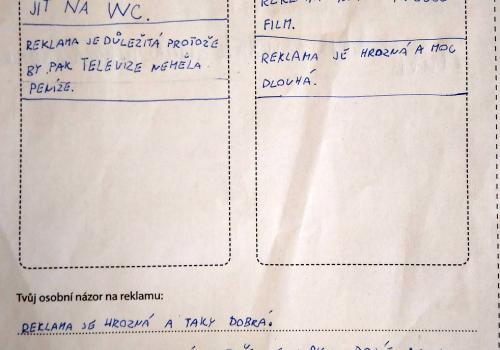 JÍT NA WC.
REKLAMA JE DŮLEŽITÁ PROTOŽE
BY PAK TELEVIZE NEMĚLA
PENÍZE.
FILM.
REKLAMA JE HROZNÁ A MOC
DLOUHÁ.
Tvůj osobní názor na reklamu:
REKLAMA JE HROZNÁ A TAKY DOBRÁ.